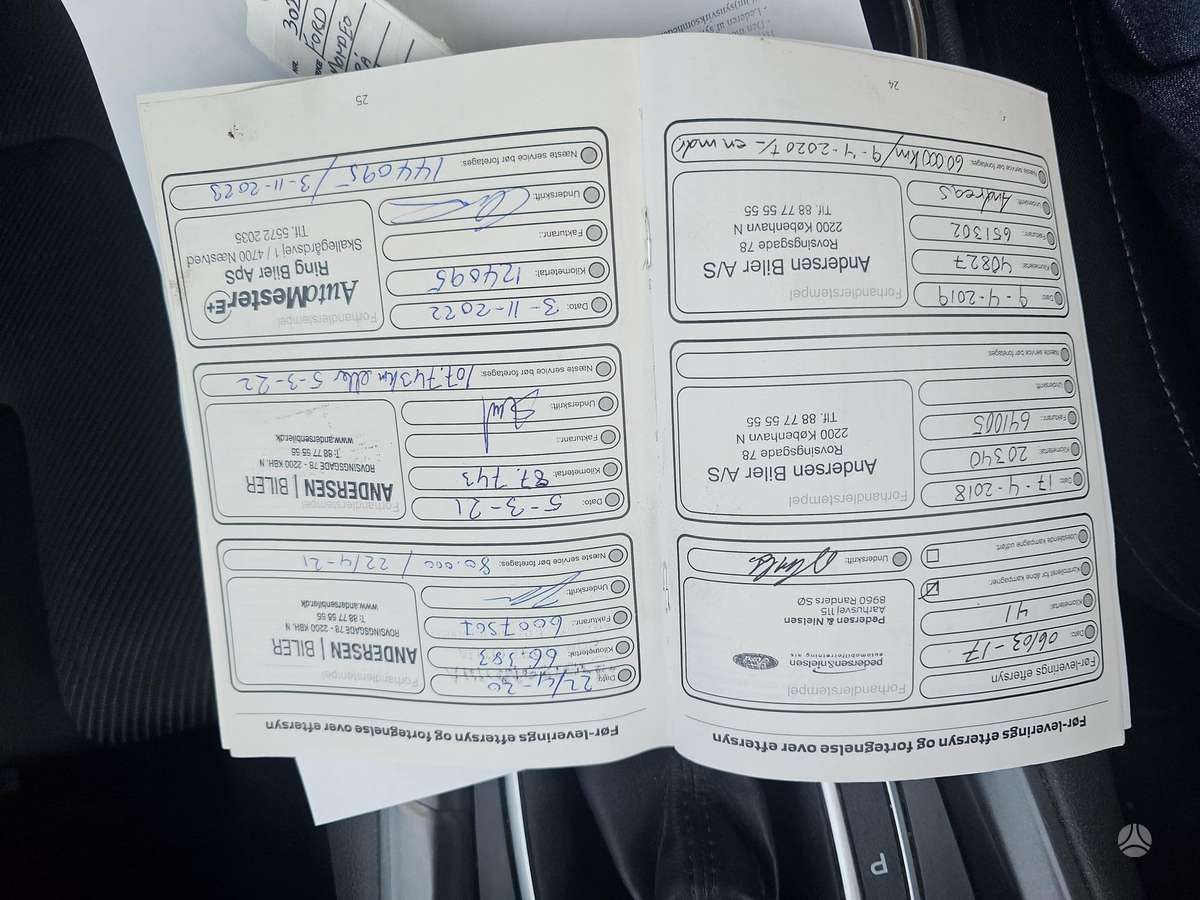 Før-leverings eftersyn og fortegnelse over eftersyn
Før-leverings eftersyn
Dato: 06/03-17
Kilometertal: 41
Kontrolleret for åbne kampagner:
Udestående kampagne udført:
Forhandlerstempel
pedersen&nielsen
automobilforretning a/s
Ford
Pedersen & Nielsen
Aarhusvej 115
8960 Randers SØ
Underskrift:
Dato: 17-4-2018
Kilometertal: 20340
Fakturanr.: 641005
Underskrift:
Forhandlerstempel
Andersen Biler A/S
Rovsingsgade 78
2200 København N
Tlf. 88 77 55 55
Næste service bør foretages:
Dato: 9-4-2019
Kilometertal: 40827
Fakturanr.: 651302
Underskrift: Andreas
Forhandlerstempel
Andersen Biler A/S
Rovsingsgade 78
2200 København N
Tlf. 88 77 55 55
Næste service bør foretages: 60000km/9-4-2020 +/- en mdr
24
Før-leverings eftersyn og fortegnelse over eftersyn
Dato: 22/4-20
Kilometertal: 66.383
Fakturanr.: 6007567
Underskrift:
Forhandlerstempel
ANDERSEN | BILER
ROVSINGSGADE 78 - 2200 KBH. N
T: 88 77 55 55
www.andersenbiler.dk
Næste service bør foretages: 80.000 / 22/4-21
Dato: 5-3-21
Kilometertal: 87.743
Fakturanr.:
Underskrift:
Forhandlerstempel
ANDERSEN | BILER
ROVSINGSGADE 78 - 2200 KBH. N
T: 88 77 55 55
www.andersenbiler.dk
Næste service bør foretages: 107.743km eller 5-3-22
Dato: 3-11-2022
Kilometertal: 124095
Fakturanr.:
Underskrift:
Forhandlerstempel
AutoMester E+
Ring Biler ApS
Skallegårdsvej 1 / 4700 Næstved
Tlf. 5572 2035
Næste service bør foretages: 144095 / 3-11-2023
25
FORD
MONDEO
P